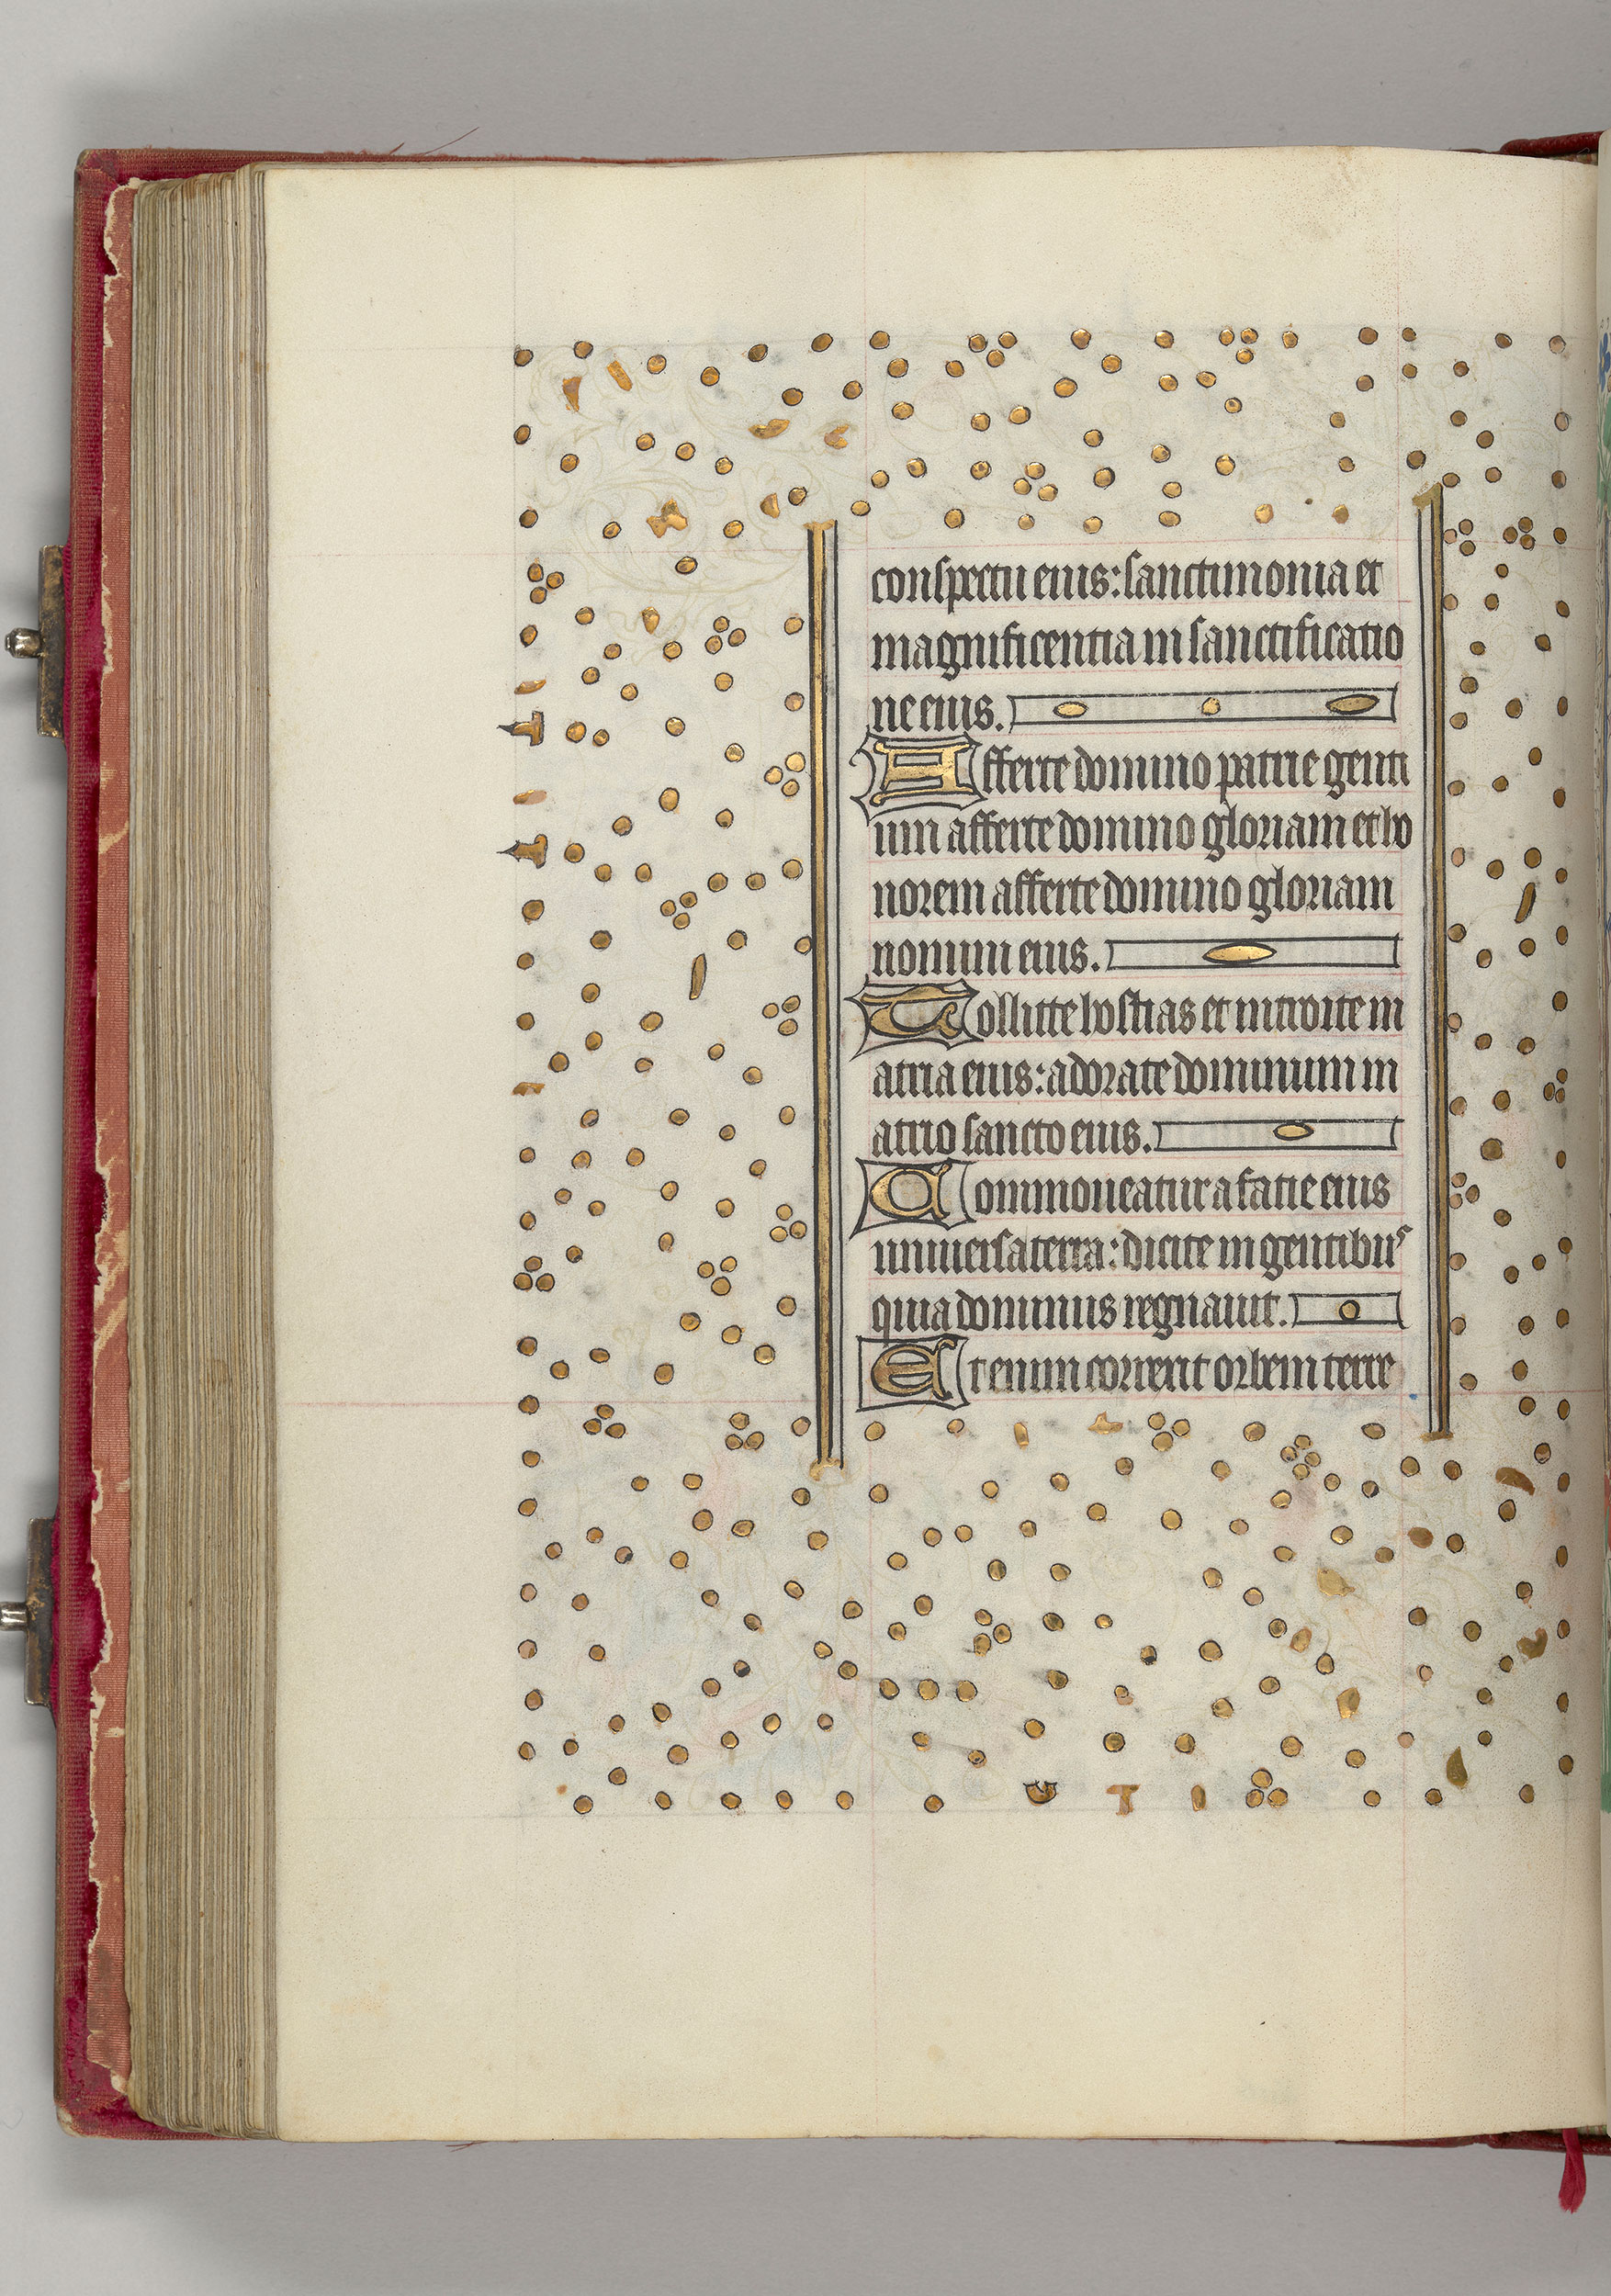 conspectu eius: sanctimonia et
magnificentia in sanctificatio
ne eius.
Afferte domino patrie genti
um afferte domino gloriam et ho
norem afferte domino gloriam
nomini eius.
Tollitte hostias et introite in
atria eius: adorate dominum in
atrio sancto eius.
Commoueatur a facie eius
uniuersa terra: dicite in gentibus
quia dominus regnauit.
Et enim correxit orbem terre